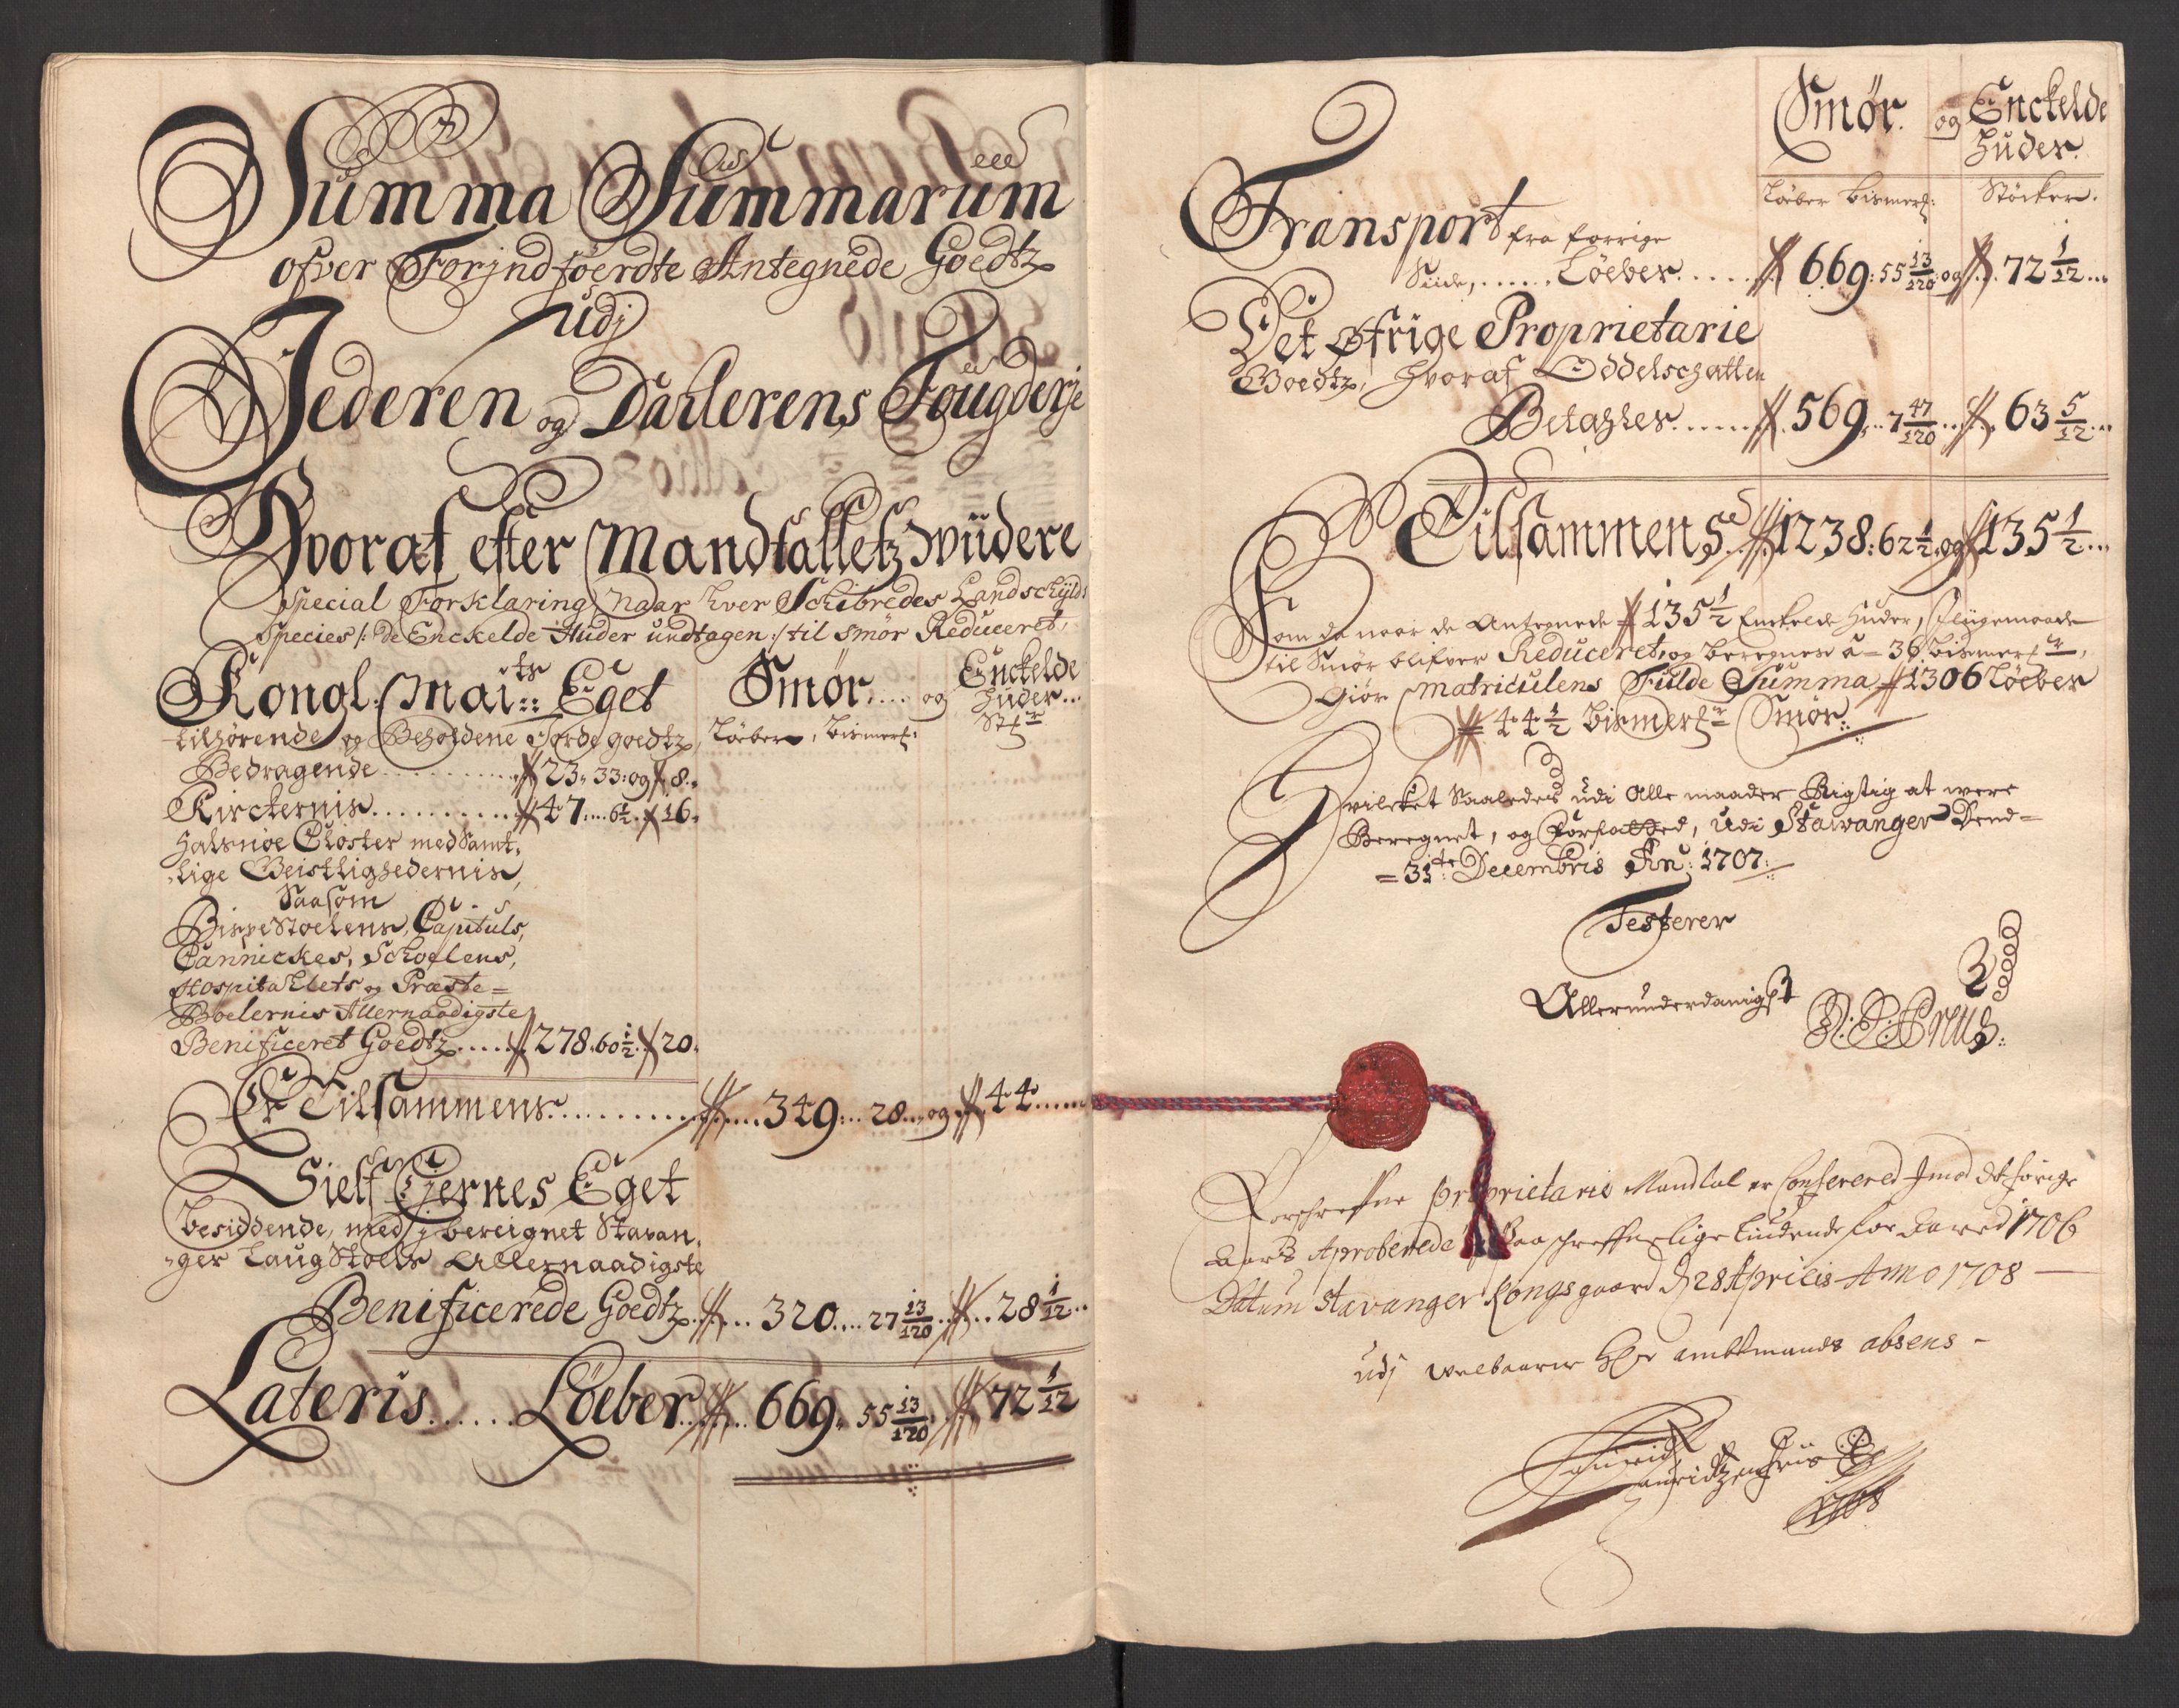 Summa Summarum
ofver Forjndføerdte Antegnede Goedtz
udj
Jederen og Dahlerens Fougderje
Hvoraf efter Mandtalletz widere
Special Forklaring, Naar hver Schibredes Landschÿlds
Species /: de Enckelde Huder undtagen :/ til Smør Reduceret,
Kongl: Mai:ts Eget Smør.... og Enckelde
Huder...
tilhørende og Beholdene Jordegoedtz, Løeber, Bismerk: Stkr
Bedragende............ 23, 33: og 8..
Kirckernis............ 47.... 6½. 16.
Halsnøe Closter med Samt,
lige Geistlighedernis,
Saasom
BispeStoelens, Capituls,
Cannickes, Schoelens,
Hospitahlets og Præste=
Boelernis Allernaadigste
Benificeret Goedtz..... 278. 60½.. 20.
Er Tilsammens............ 349:... 28... og 44......
Sielf Ejernes Eget
besiddende, med j bereignet Stavan,
ger LaugStoels Allernaadigste
Benificerede Goedtz.... 320.... 27 13/120... 28 1/12...
Lateris...... Løeber.... 669.. 55 13/120.. 72 1/12
Smør. og Enckelde
Huder.
Løeber Bismerk: Støcker.
Transport fra forrige
Siide,...... Løeber..... 669: 55 13/120: og 72 1/12...
Det øfrige Proprietarie
Goedtz, Hvoraf Oddelschatten
Betahles...... 569,.. 7 47/120... 63 5/12...
Tilsammens.. 1238: 62½. og 135½...
Som da naar de Antegnede 135½ Enckelde Huder, Lligemaade
til Smør blifver Reduceret, og beregnes a= 36 Bismerkr,
Giør Matriculens Fulde Summa 1306 Løeber
44½ Bismerkr Smør:
Hvilcket Saaledes udi Alle maader Rigtig at were
Beregnet, og Forfatted, Udi Stawanger Dend=
=31te: Decembris An: 1707:
Testerer
Allerunderdanigst
Forschrefne Proprietarie Mandtal er Confereret Jmod det forige
Aars Aproberede saa schreffuelige liudende for Aared 1706
Datum Stavanger Kongsgaard d 28 Aprilis Anno 1708 —
udj welbaarne Hr amtmands absens –
1708